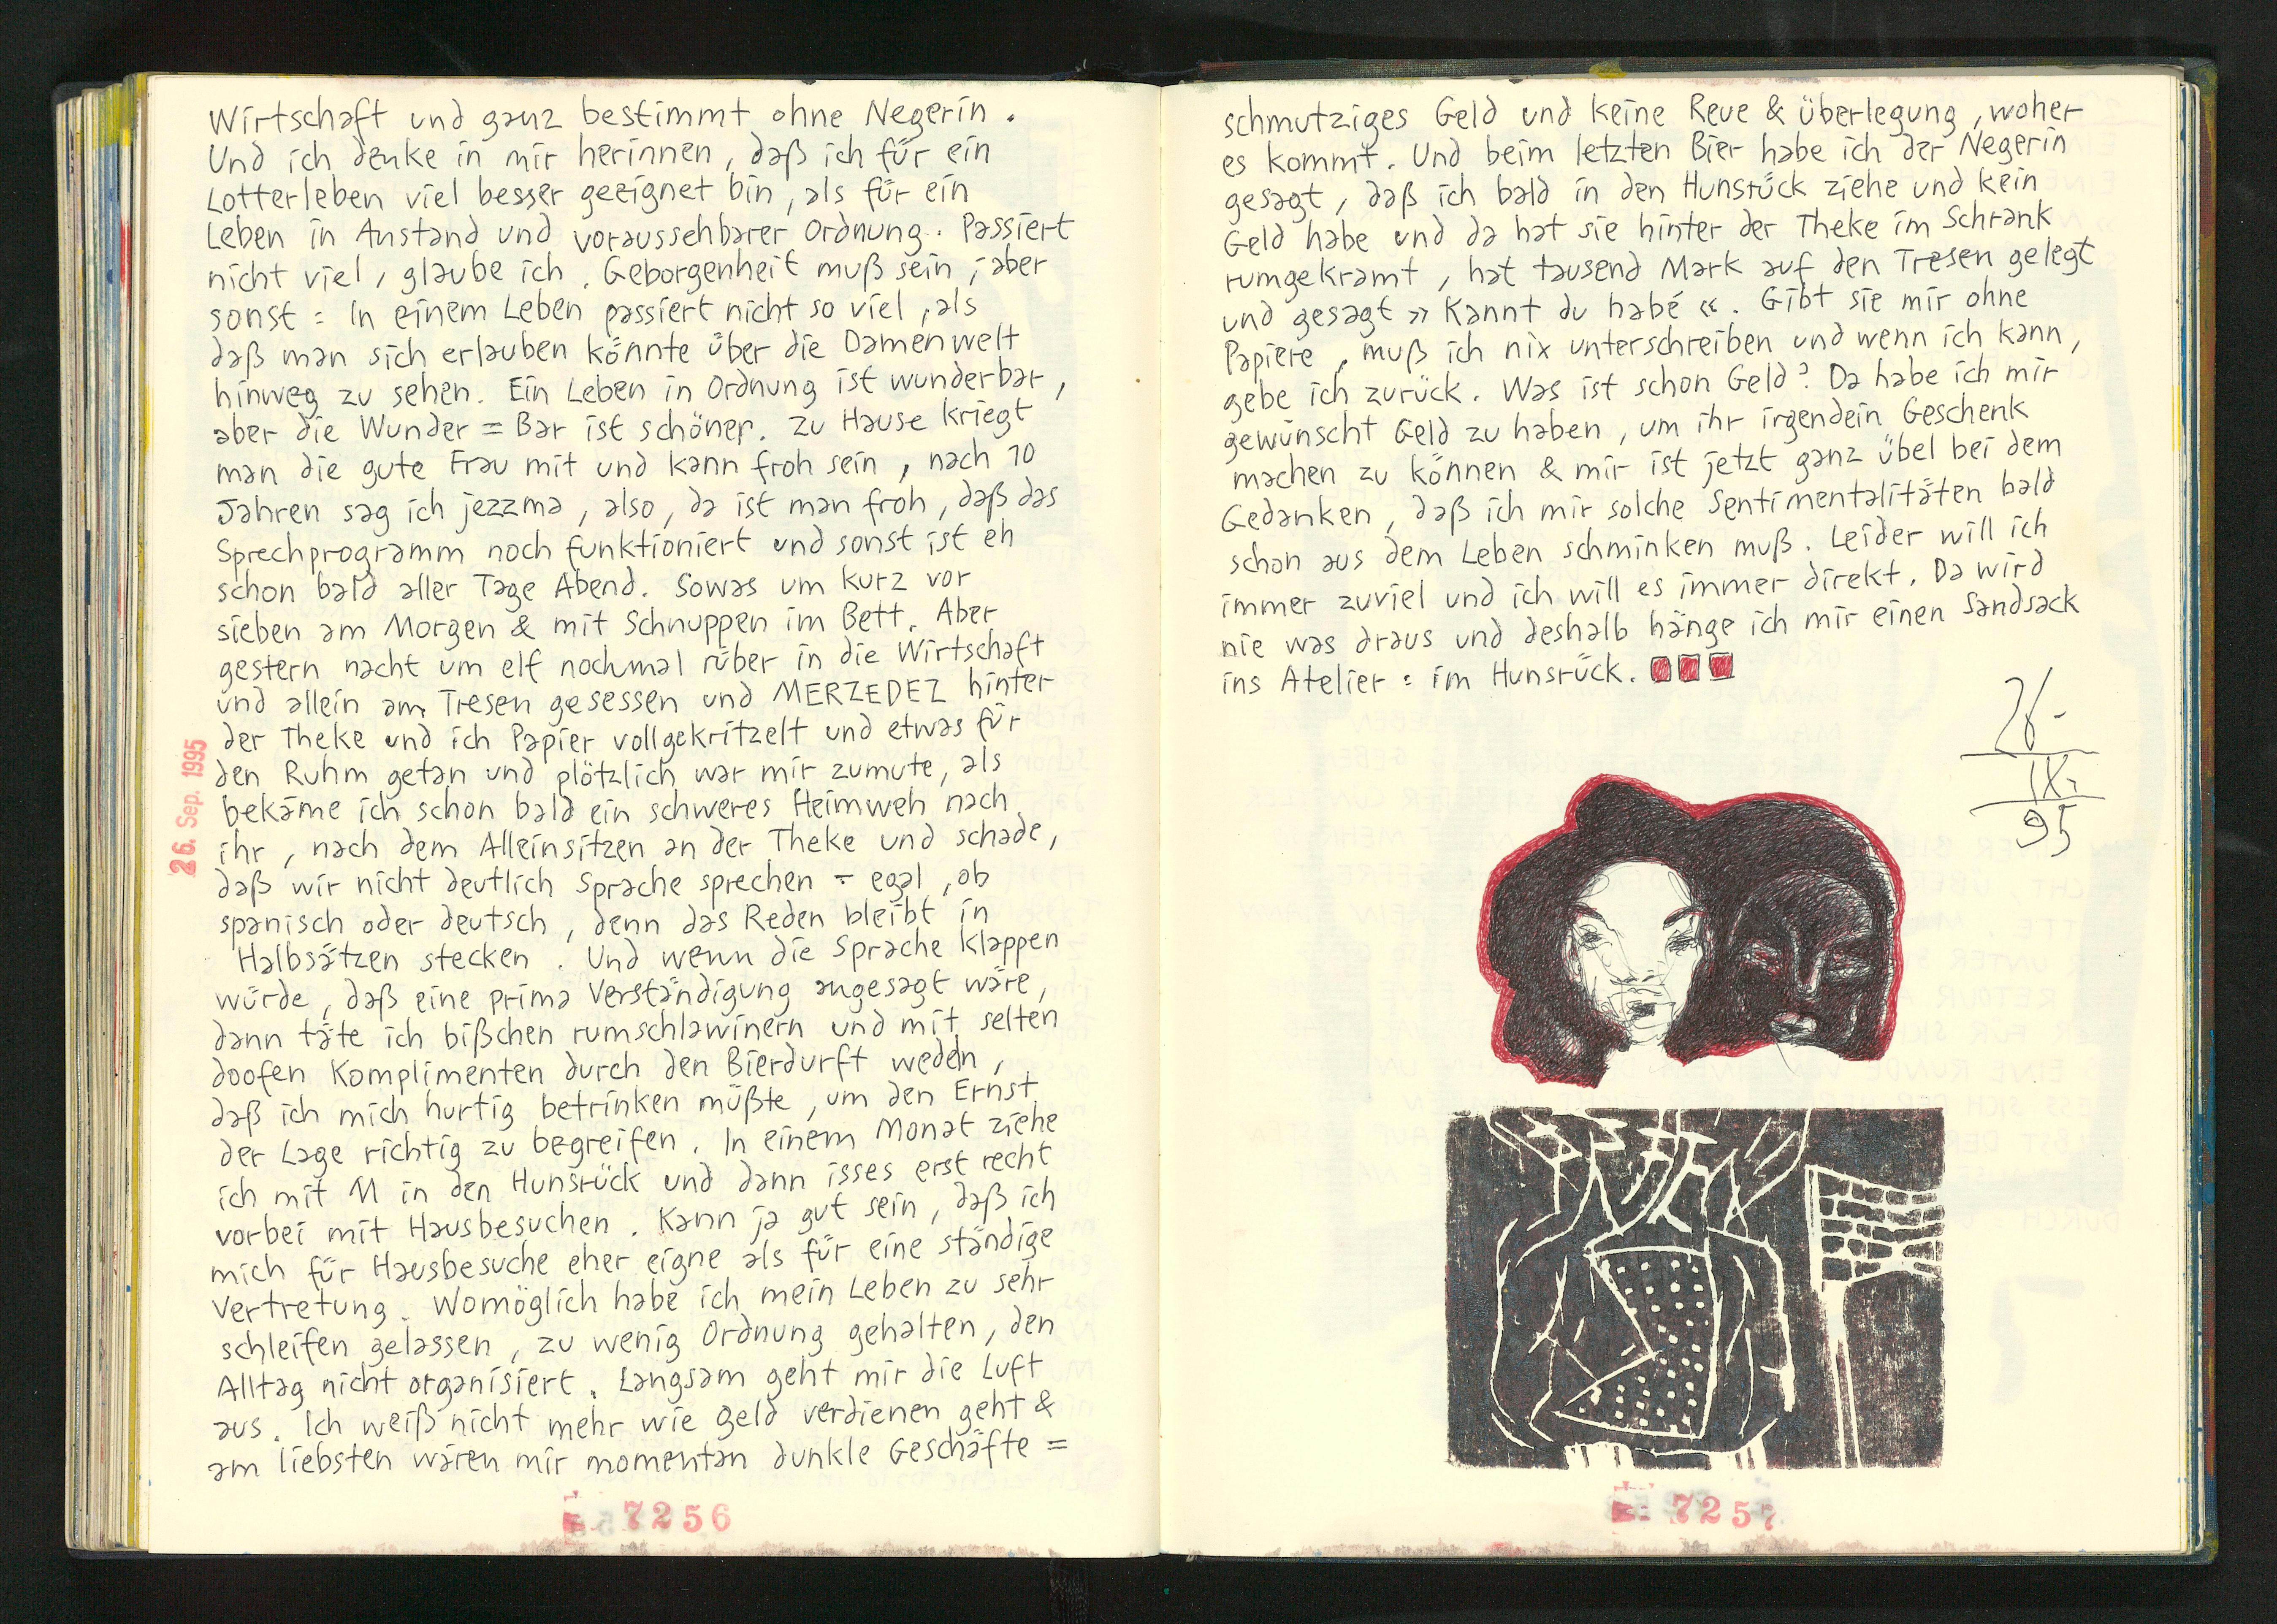 Wirtschaft und ganz bestimmt ohne Negerin.
Und ich denke in mir herinnen, daß ich für ein
Lotterleben viel besser geeignet bin, als für ein
Leben in Anstand und voraussehbarer Ordnung. Passiert
nicht viel, glaube ich. Geborgenheit muß sein, aber
sonst = In einem Leben passiert nicht so viel, als
daß man sich erlauben könnte über die Damenwelt
hinweg zu sehen. Ein Leben in Ordnung ist wunderbar,
aber die Wunder = Bar ist schöner. Zu Hause kriegt
man die gute Frau mit und kann froh sein, nach 10
Jahren sag ich jezzma, also, da ist man froh, daß das
Sprechprogramm noch funktioniert und sonst ist eh
schon bald aller Tage Abend. Sowas um kurz vor
sieben am Morgen & mit Schnuppen im Bett. Aber
gestern nacht um elf nochmal rüber in die Wirtschaft
und allein am Tresen gesessen und MERZEDEZ hinter
der Theke und ich Papier vollgekritzelt und etwas für
den Ruhm getan und plötzlich war mir zumute, als
bekäme ich schon bald ein schweres Heimweh nach
ihr, nach dem Alleinsitzen an der Theke und schade,
daß wir nicht deutlich Sprache sprechen - egal, ob
spanisch oder deutsch, denn das Reden bleibt in
Halbsätzen stecken. Und wenn die Sprache klappen
würde, daß eine prima Verständigung angesagt wäre,
dann täte ich bißchen rumschlawinern und mit selten
doofen Komplimenten durch den Bierdurft wedeln,
daß ich mich hurtig betrinken müßte, um den Ernst
der Lage richtig zu begreifen. In einem Monat ziehe
ich mit M in den Hunsrück und dann isses erst recht
vorbei mit Hausbesuchen. Kann ja gut sein, daß ich
mich für Hausbesuche eher eigne als für eine ständige
Vertretung. Womöglich habe ich mein Leben zu sehr
schleifen gelassen, zu wenig Ordnung gehalten, den
Alltag nicht organisiert. Langsam geht mir die Luft
aus. Ich weiß nicht mehr wie Geld verdienen geht &
am liebsten wären mir momentan dunkle Geschäfte =
26. Sep. 1995
7256
schmutziges Geld und keine Reue & Überlegung, woher
es kommt. Und beim letzten Bier habe ich der Negerin
gesagt, daß ich bald in den Hunsrück ziehe und kein
Geld habe und da hat sie hinter der Theke im Schrank
rumgekramt, hat tausend Mark auf den Tresen gelegt
und gesagt » Kannt du habé «. Gibt sie mir ohne
Papiere, muß ich nix unterschreiben und wenn ich kann,
gebe ich zurück. Was ist schon Geld? Da habe ich mir
gewünscht Geld zu haben, um ihr irgendein Geschenk
machen zu können & mir ist jetzt ganz übel bei dem
Gedanken, daß ich mir solche Sentimentalitäten bald
schon aus dem Leben schminken muß. Leider will ich
immer zuviel und ich will es immer direkt. Da wird
nie was draus und deshalb hänge ich mir einen Sandsack
ins Atelier : im Hunsrück.
26-
IX.
95
7257